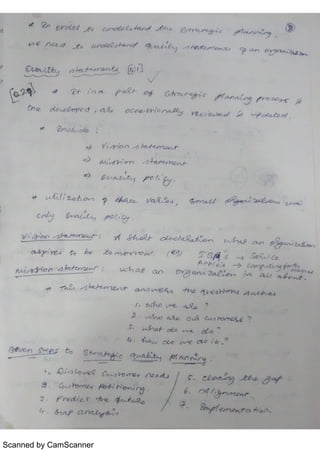 * In order to understand the strategic planning,
we need to understand quality statements of an organization
Quality statements [Q1]
[Q2] * It is a part of strategic planning process &
once developed, are occasionally reviewed & updated.
* Include :
a) Vision statement
b) Mission statement
c) Quality policy.
* utilization of these varies, small organizations use
only quality policy.
Vision statement : A short declaration what an organization
aspires to be tomorrow (eg) → service
Apple's → computing for the masses
Mission statement : what an organization is all about.
* This statement answers the questions such as
1. who we are ?
2. who are our customers ?
3. what do we do ?
4. how do we do it ?
Seven steps to strategic quality planning.
1. Discover customer needs
2. Customer Positioning.
3. Predict the future
4. Gap analysis
5. Closing the gap
6. Alignment
7. Implementation
Scanned by CamScanner